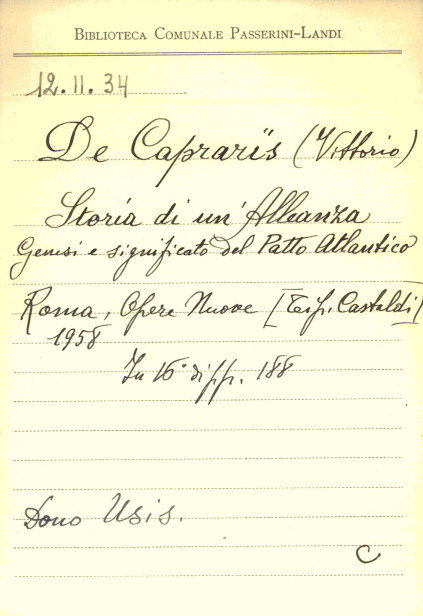 BIBLIOTECA COMUNALE PASSERINI-LANDI
12.11.34
De Capraris (Vittorio)
Storia di un'Alleanza
Genesi e significato del Patto Atlantico
Roma, Opere Nuove [Tip. Castaldi]
1958
In 16° di pp. 188
Dono Usis.
C